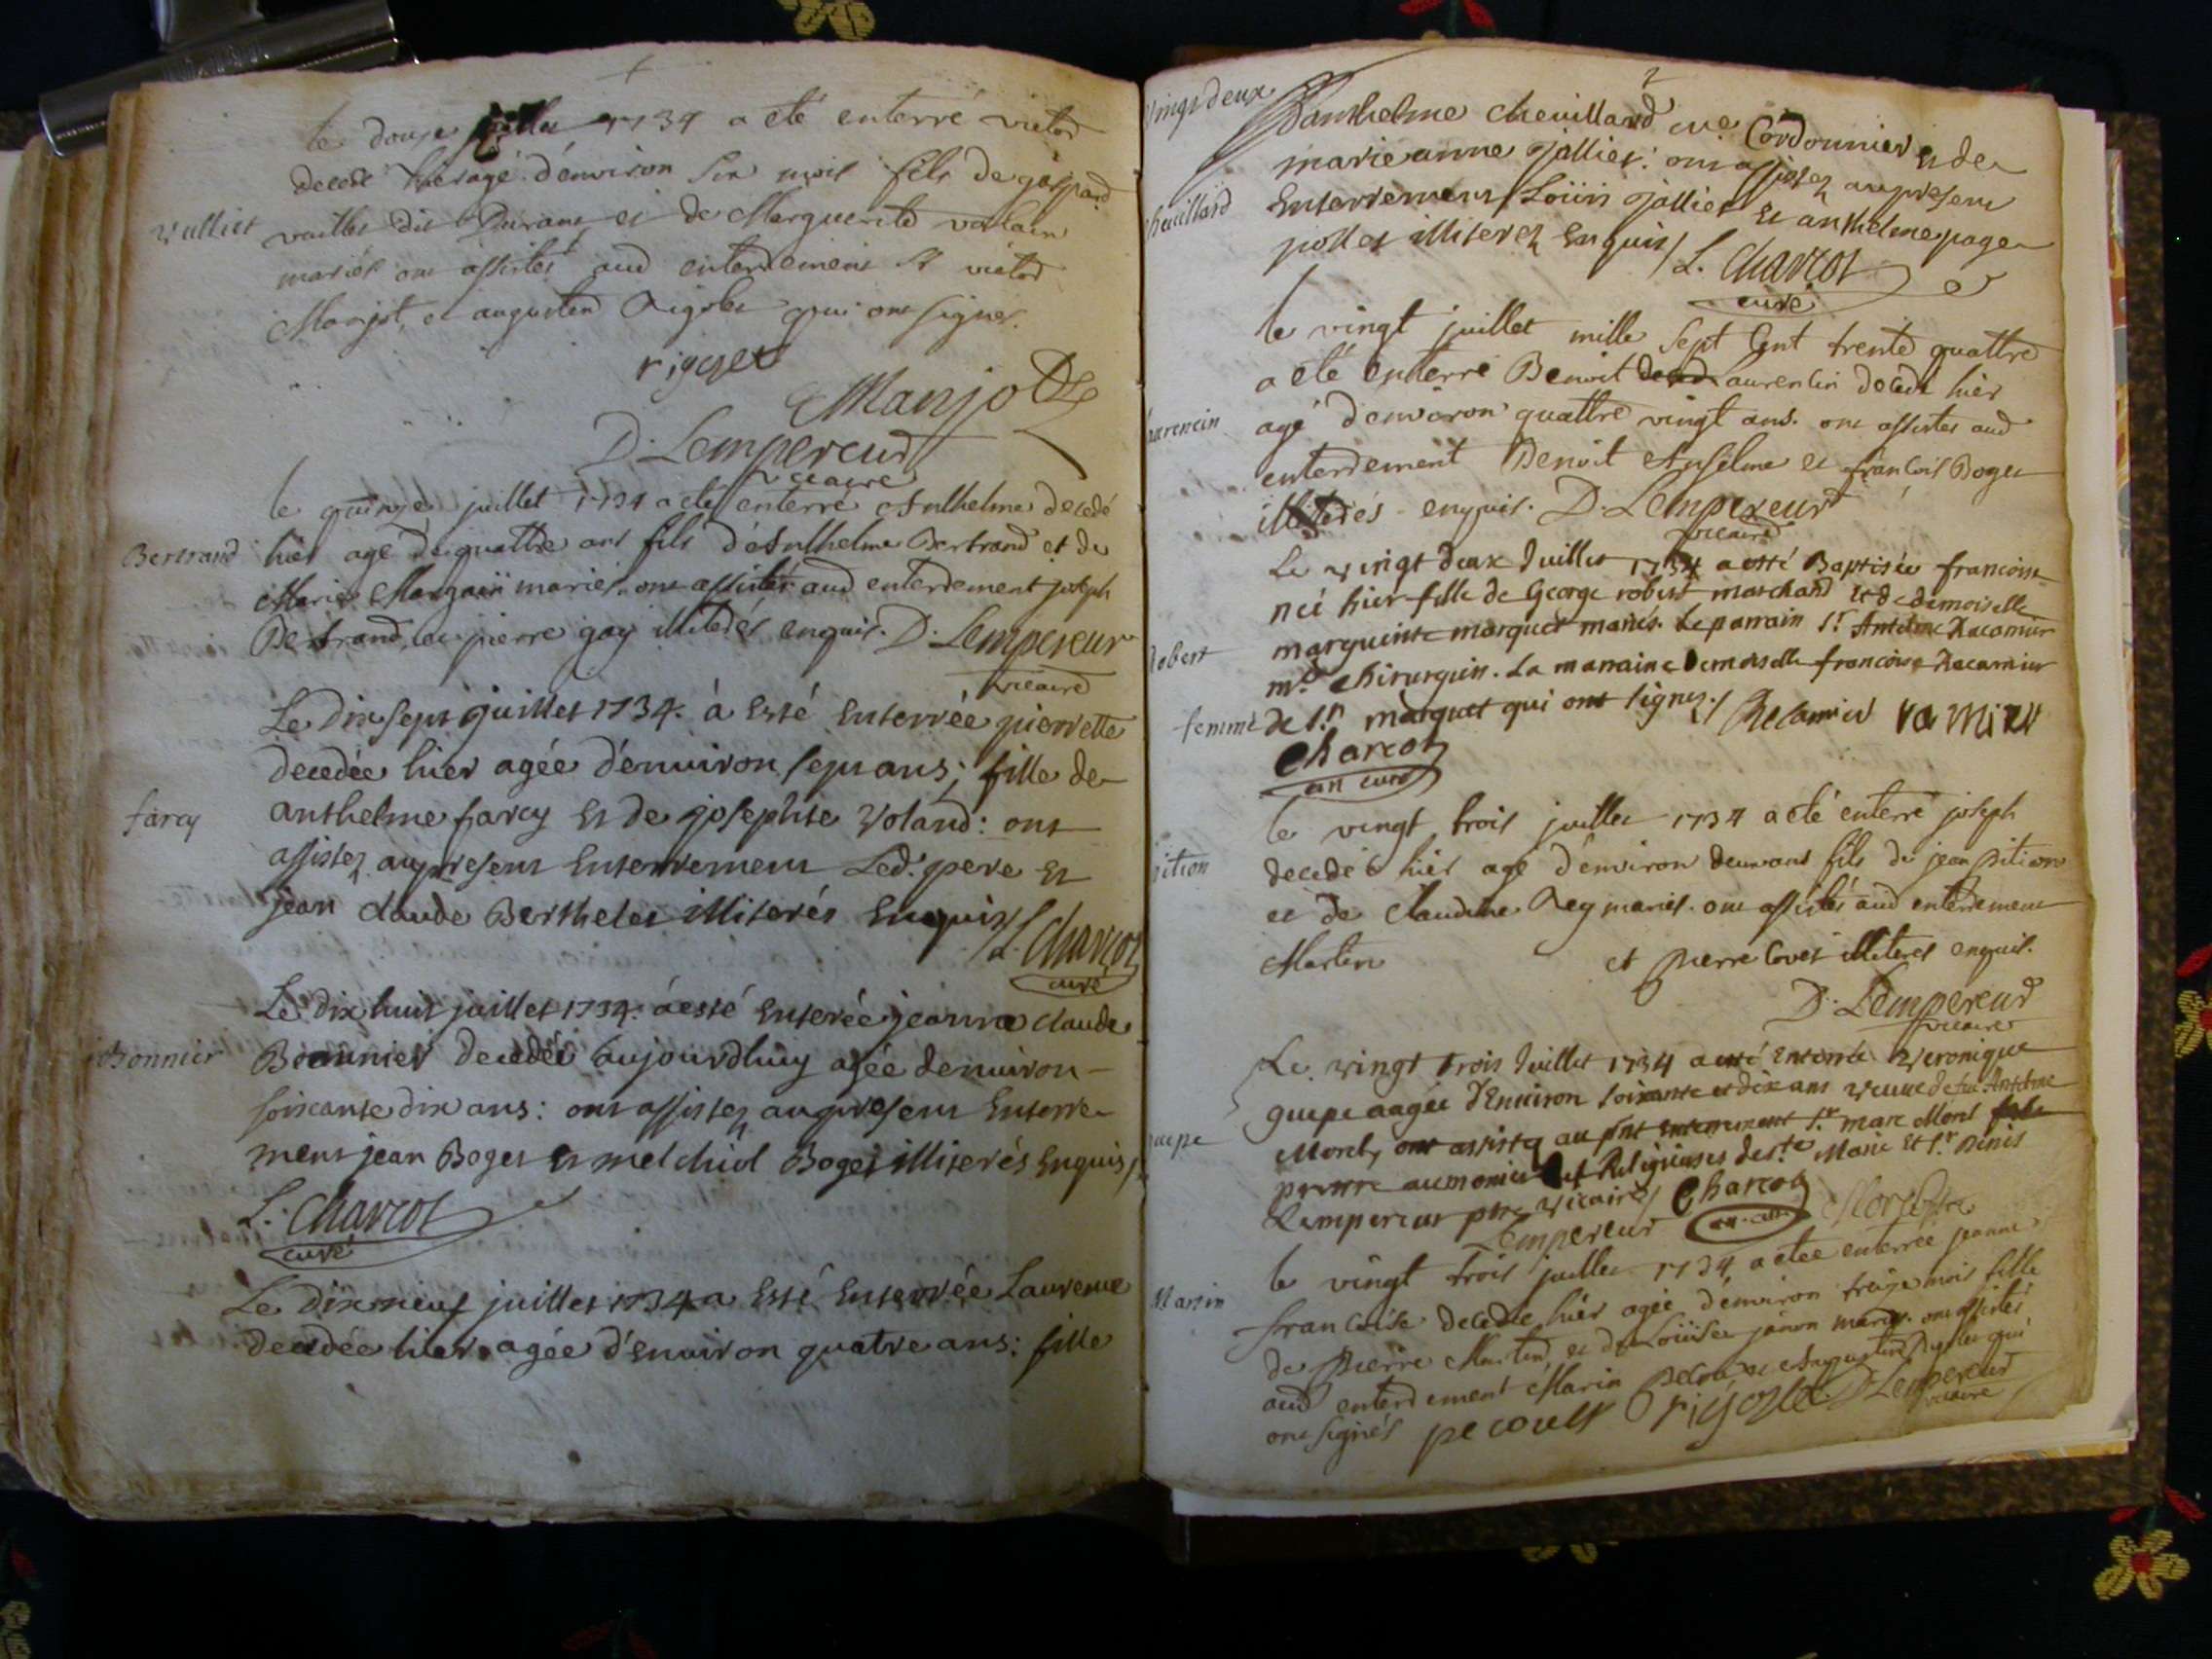 le douze juillet 1734 a eté enterré victor
decedé hier agé d'environ six mois fils de gaspard
vulliet
vuillet dit Durant et de Marguerite
mariés ont assistés aud enterrement Sr victor
Manjot, et augustin Rigolet qui ont signés.
rigolet
Manjot
D. Lempereur
vicaire
le quinze juillet 1734 a eté enterré Anthelme decedé
Bertrand
hier agé de quattre ans fils d'Anthelme Bertrand et de
Marie mariés ont assistés aud enterrement joseph
Bertrand, et pierre gay illiterés enquis. D. Lempereur
vicaire
Le Dix sept juillet 1734. à Esté Enterrée pierrette
decedée hier agée d'environ sept ans; fille de
farcy
anthelme farcy Et de josephte Voland: ont
assistez au present Enterrement Led. pere Et
jean claude Berthelet illiterés Enquis/
L. Charcot
curé
Le dix huit juillet 1734. a esté Enterée jeanne claude
Bonnier
Bonnier decedée aujourdhuy agée denviron
soixante dix ans: ont assistez au present Enterre-
ment jean Boget Et melchiol Boget illiterés Enquis/
L. Charcot
curé
Le Dix neuf juillet 1734 a Esté Enterrée Laurence
decedée hier agée d'environ quatre ans: fille
Vingt deux
Danthelme chevillard me Cordonnier Et de
marie anne jallier: ont assistez au present
chevillard
Enterrement Loüis jallier Et anthelme page
illiterez Enquis/ L. Charcot
curé
le vingt juillet mille sept Cent trente quattre
a eté enterré Benoit laurencin decedé hier
laurencin
agé d'environ quattre vingt ans. ont assistés aud
enterrement Benoit Anselme et francois Boget
illiterés enquis. D. Lempereur
vicaire
Le vingt deux Juillet 1734 a esté Baptisée francoise
neé hier fille de George robert marchand et de demoiselle
Robert
marguerite marquet mariés. Le parrain Sr Antelme Racamier
mre Chirurgien. La marraine Demoiselle francoise Racamier
femme de Sr marquet qui ont signez./ Recamier ra mier
Charcot
an curé
le vingt trois juillet 1734 a eté enterré joseph
pition
decedé hier agé d'environ deux ans fils de jean pition
et de claudine Rey mariés. ont assistés aud enterrement
Martin et pierre Covet illiterés enquis.
D. Lempereur
vicaire
Le vingt trois Juillet 1734 a esté Enterrée Veronique
guepe aagée d'Environ soixante et dix ans veuve de feu Antelme
guepe
Morel, ont assistez au pnt Enterrement Sr marc Morel
prestre aumonier des Religieuses de ste Marie Et Sr Denis
Lempereur ptre vicaire/ Charcot
Lempereur an curé Morel ptre
le vingt trois juillet 1734 a etée enterrée jeanne
Martin
francoise decedée hier agée d'environ treize mois fille
de pierre Martin, et de Loüise janon mariés. ont assistés
aud enterrement Marin et Augustin Rigolet qui
ont signés pecoult rigolet D. Lempereur
vicaire